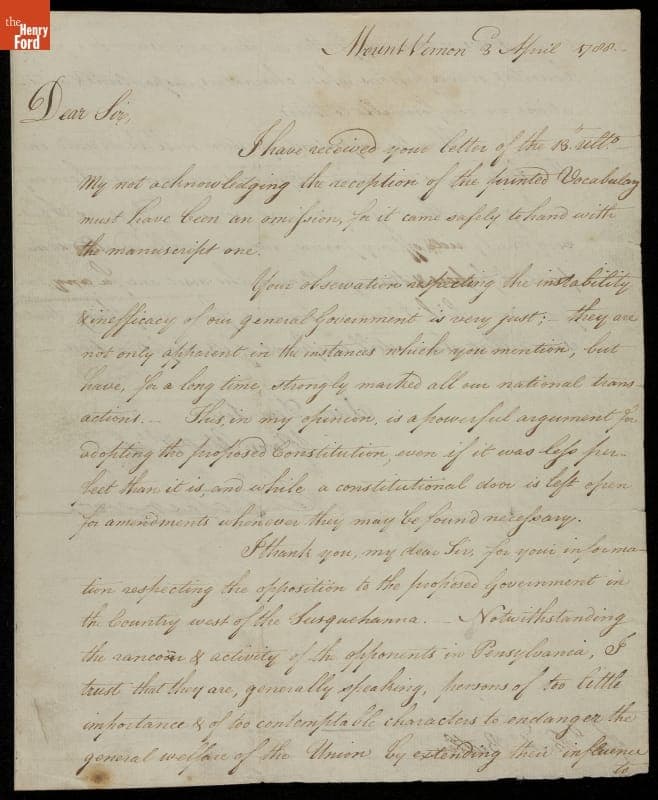 the
Henry
Ford
Mount Vernon 3d April 1788 —
Dear Sir,
I have received your letter of the 18th ulto. —
My not acknowledging the reception of the printed Vocabulary
must have been an omission, for it came safely to hand with
the manuscript one.
Your observation respecting the instability
& inefficacy of our general Government is very just; — they are
not only apparent in the instances which you mention, but
have, for a long time, strongly marked all our national trans-
actions. — This, in my opinion, is a powerful argument for
adopting the proposed Constitution, even if it was less per-
fect than it is, and while a constitutional door is left open
for amendments whenever they may be found necessary.
I thank you, my dear Sir, for your informa-
tion respecting the opposition to the proposed Government in
the Country west of the Susquehanna. — Notwithstanding
the rancour & activity of the opponents in Pensylvania, I
trust that they are, generally speaking, persons of too little
importance & of too contemptable characters to endanger the
general welfare of the Union by extending their influence
to